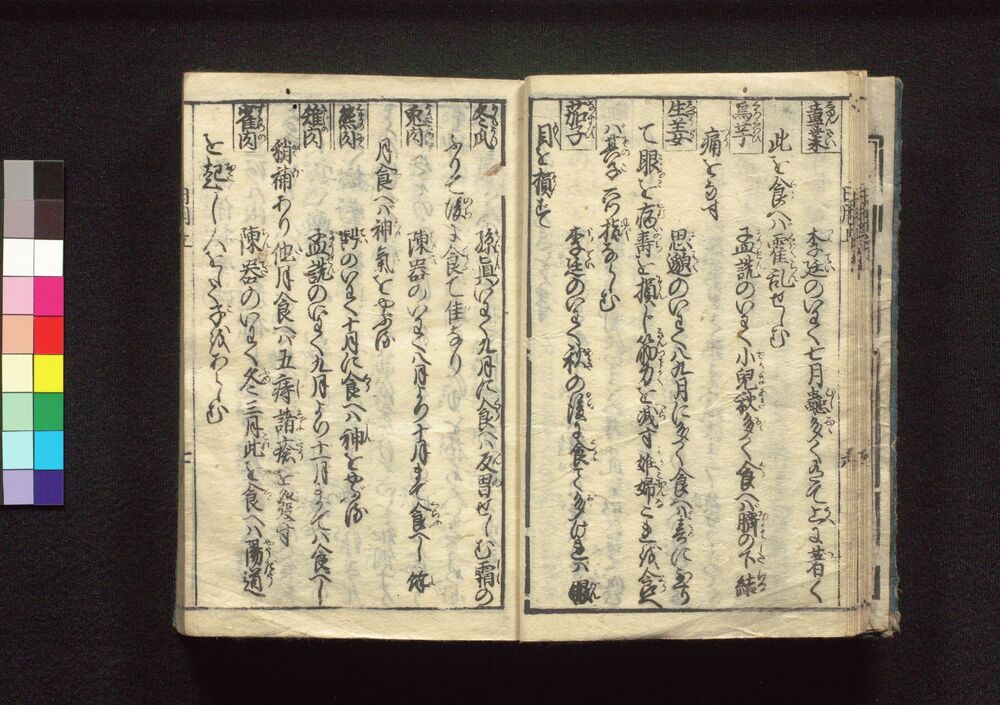 李廷のいはく七月蟲多く有てそ上に著く
此を食へハ霍乱せしむ
烏芋 孟詵のいはく小兒秋多く食へハ臍の下結
痛をなす
生姜 思邈のいはく八九月に多く食へハ春に至り
て眼を病壽を損し筋力を减す姙婦これを食へ
ハ其子 指ならしむ
茄子 李廷のいはく秋の後に食て多けれハ眼
目を損す
冬瓜 孫眞いはく九月に食へハ反胃せしむ霜の
ふりて後に食て佳なり
兎肉 陳器のいはく八月より十月まて食へし餘
月食へハ神氣をやふる
熊肉 のいはく十月に食へハ神をやふる
雉肉 孟詵のいはく九月より十一月まてハ食へし
稍補あり他月食へハ五痔諸瘡を發す
雀肉 陳器のいはく冬三月此を食へハ陽道
を起し人をして子あらしむ